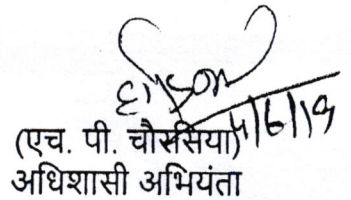 4/6/19
(एच. पी. चौरसिया)
अधिशासी अभियंता